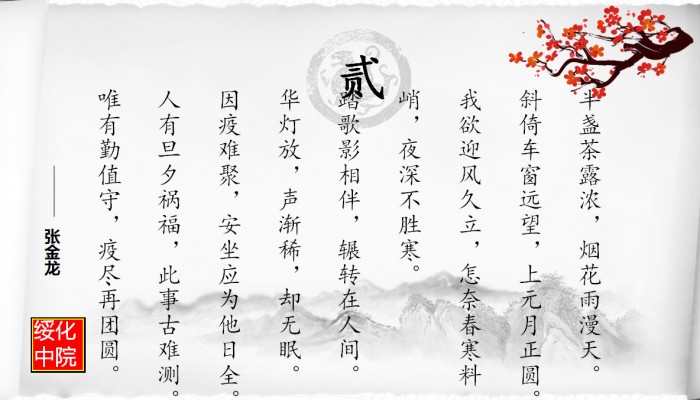 贰
半盏茶露浓，烟花雨漫天。
斜倚车窗远望，上元月正圆。
我欲迎风久立，怎奈春寒料
峭，夜深不胜寒。
踏歌影相伴，辗转在人间。
华灯放，声渐稀，却无眠。
因疫难聚，安坐应为他日全。
人有旦夕祸福，此事古难测。
唯有勤值守，疫尽再团圆。
——张金龙
绥化
中院